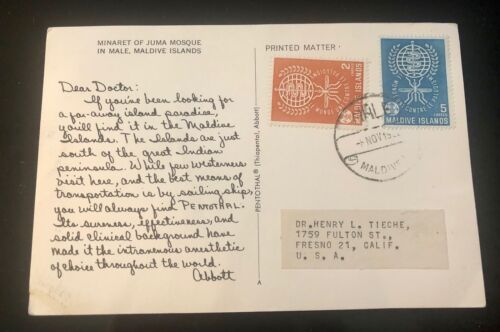 MINARET OF JUMA MOSQUE
IN MALE, MALDIVE ISLANDS
PRINTED MATTER
Dear Doctor:
If you've been looking for
a far-away island paradise,
you'll find it in the Maldive
Islands. The Islands are just
south of the great Indian
peninsula. While few westerners
visit here, and the best means of
transportation is by sailing ship,
you will always find PENTOTHAL.
Its sureness, effectiveness, and
solid clinical background have
made it the intravenous anesthetic
of choice throughout the world.
Abbott
PENTOTHAL® (Thiopental, Abbott)
A
2
LAREES
MALDIVE ISLANDS
LE MONDE UNI CONTRE
5
LAREES
MALDIVE ISLANDS
MALE
NOV 19
MALDIVE
DR.HENRY L. TIECHE,
1759 FULTON ST.,
FRESNO 21, CALIF.
U. S. A.